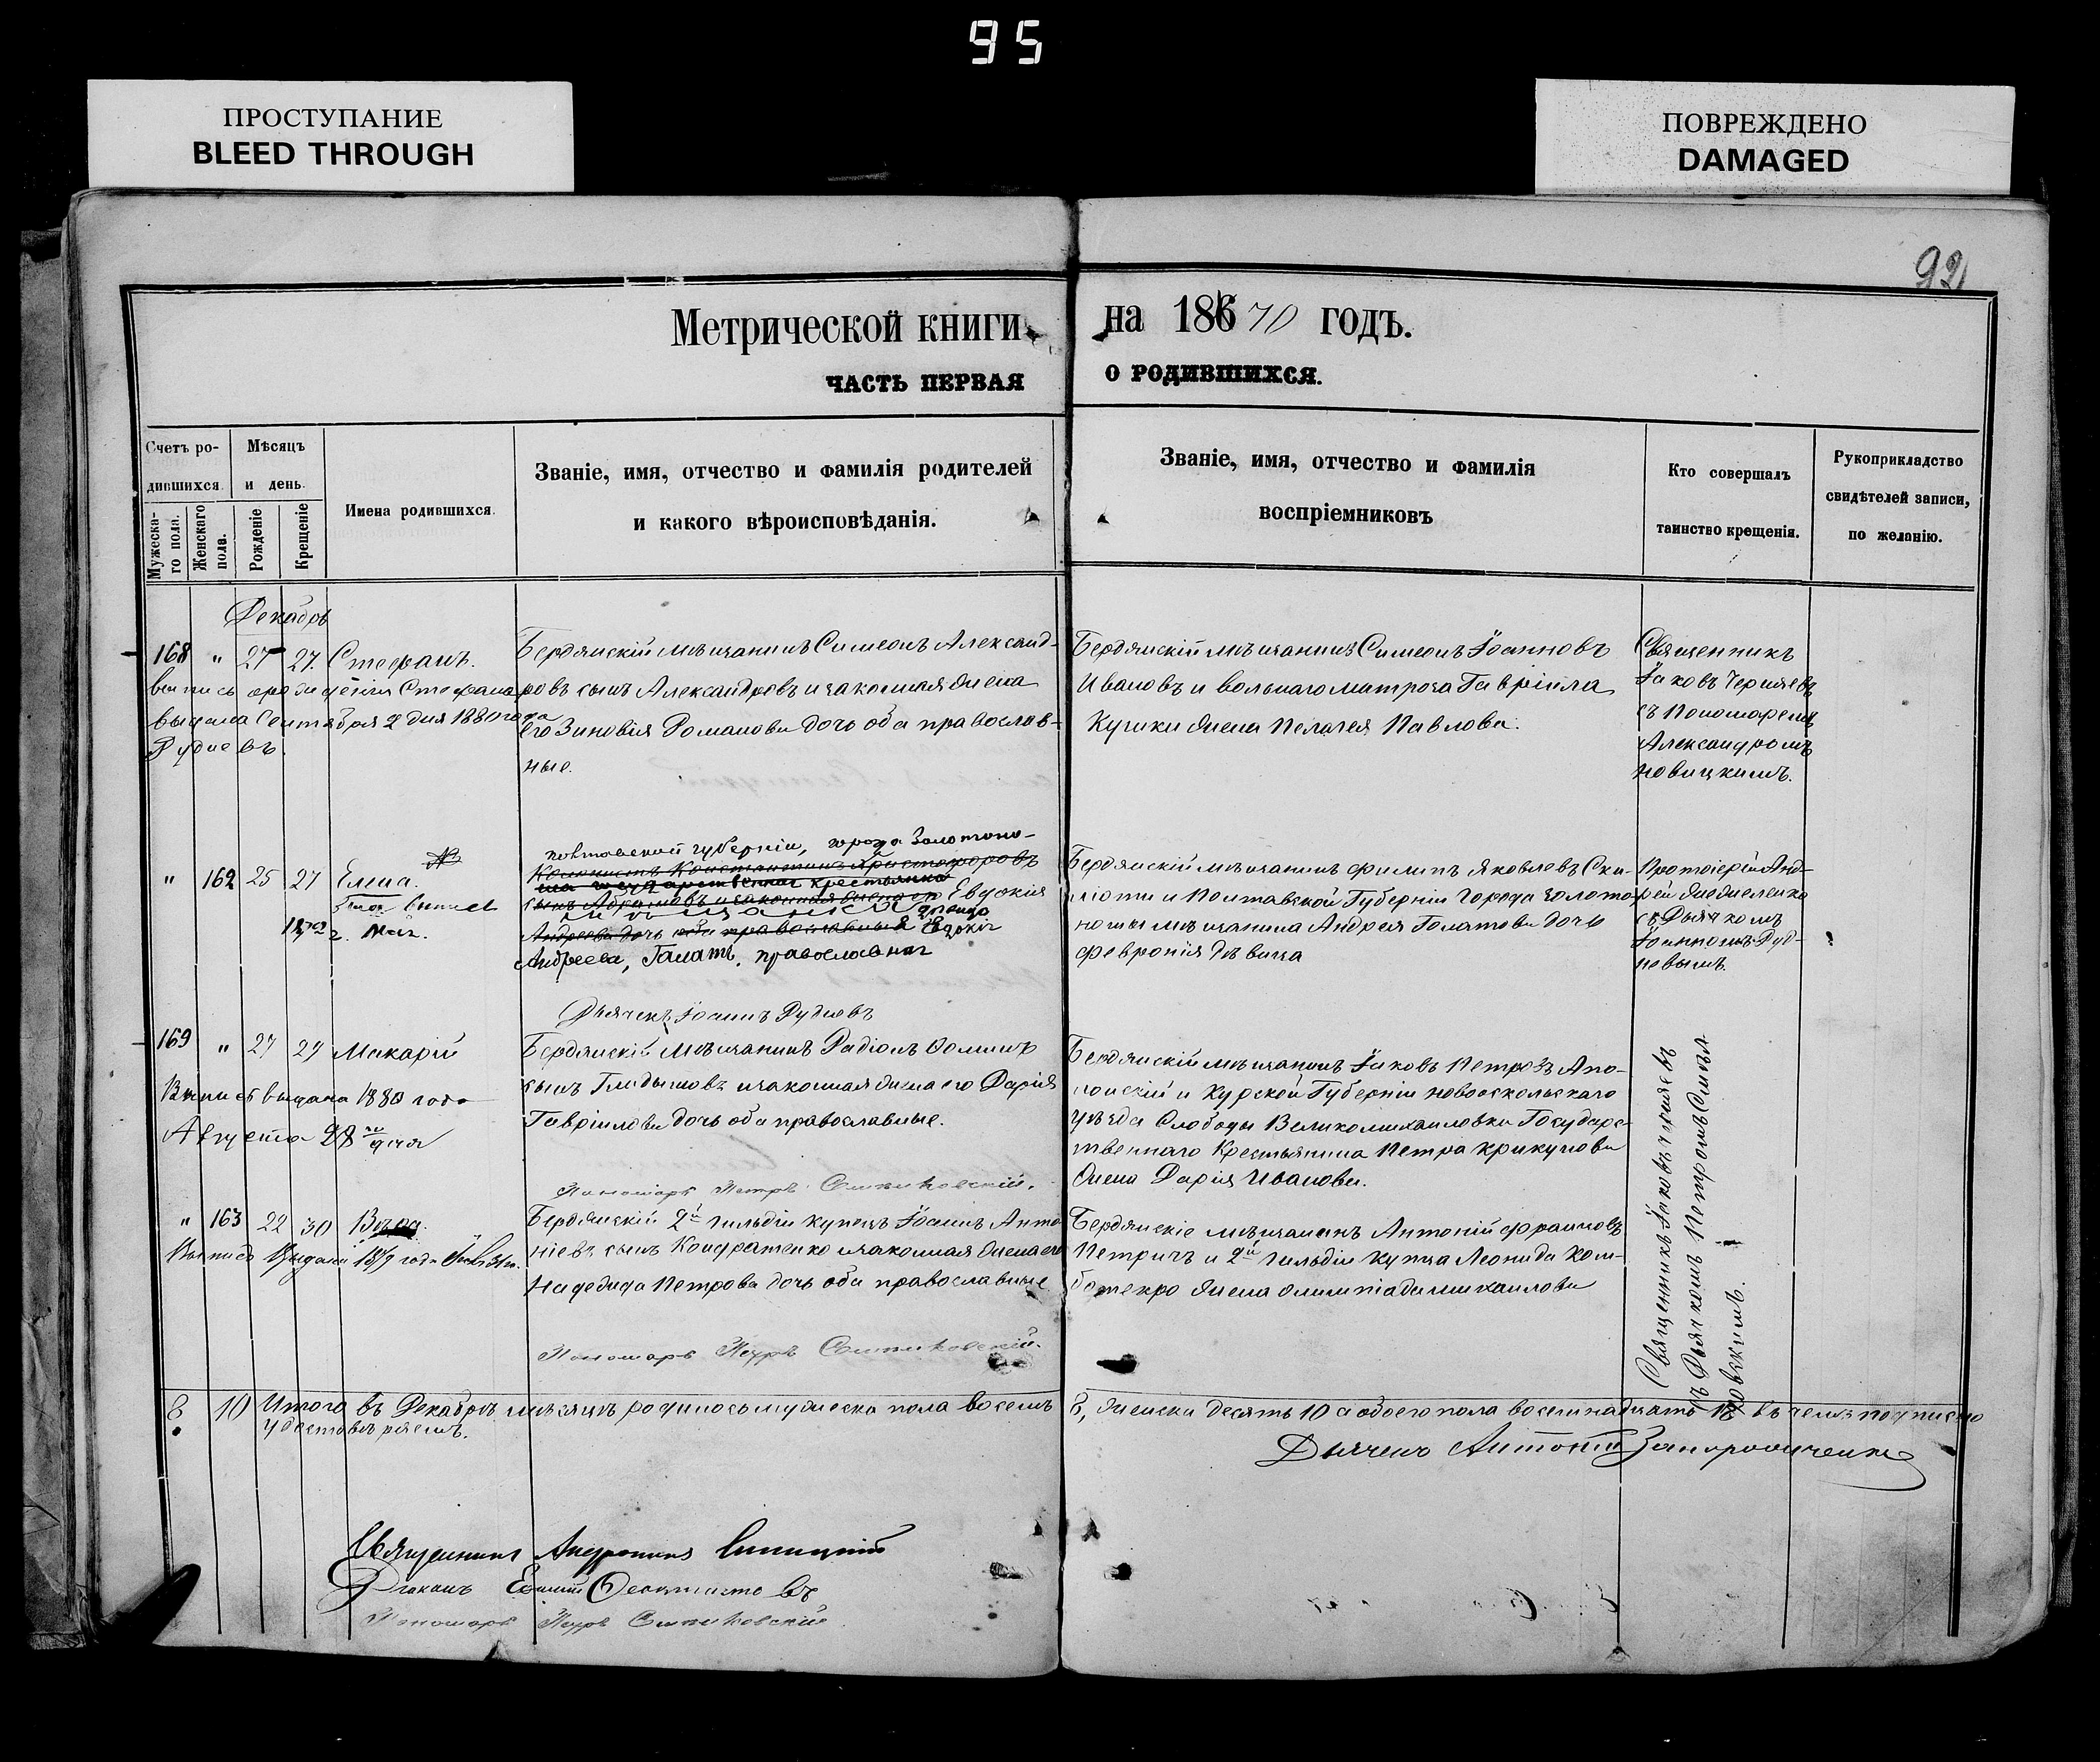 95
ПРОСТУПАНИЕ
BLEED THROUGH
ПОВРЕЖДЕНО
DAMAGED
92
Метрической книги на 1870 годъ.
ЧАСТЬ ПЕРВАЯ О РОДИВШИХСЯ.
Счетъ ро-
дившихся.
Мужеска-
го пола.
Женскаго
пола.
Мѣсяцъ
и день.
Рожденіе
Крещеніе
Имена родившихся.
Званіе, имя, отчество и фамилія родителей
и какого вѣроисповѣданія.
Званіе, имя, отчество и фамилія
воспріемниковъ
Кто совершалъ
таинство крещенія.
Рукоприкладство
свидѣтелей записи,
по желанію.
Декабрь
168 " 27 27. Стефанъ.
выдана Сентября 2 дня 1880 года
Рудневъ
Бердянскій мѣщанинъ Симеонъ Александ-
ровъ сынъ Александровъ и законная жена
его Зиновія Романова дочь оба православ-
ные.
Бердянскій мѣщанинъ Симеонъ Іоанновъ
Ивановъ и вольнаго матроза Гавріила
жена Пелагея Павлова.
Священникъ
Іаковъ Черняевъ
съ Пономаремъ
Александромъ
Новицкимъ.
" 162 25 27 Елена.
1872 г.
полтавской губерніи, города Золотоно-
Колонистъ Константинъ Христофоровъ
крестьянка
сынъ Абрамовъ и законная жена его Евдокія
Андреева дочь оба православные Евдокія
Андреева, Галатъ, православная
Дьячекъ Іоаннъ Рудневъ
Бердянскій мѣщанинъ Филипъ Яковлевъ Ски-
и Полтавской Губерніи Города Золото-
ноши мѣщанина Андрея Галатова дочь
Февронія дѣвица
Протоіерей Анд-
рей
съ Дьячкомъ
Іоанномъ Руд-
невымъ.
169 " 27 29 Макарій
Выпись выдана 1880 года
Августа 28 дня
Бердянскій мѣщанинъ Радіонъ Ѳоминъ
сынъ Гладышовъ и законная жена его Дарія
Гавріилова дочь оба православные.
Пономарь Петръ
Бердянскій мѣщанинъ Іаковъ Петровъ Апо-
лонскій и Курской Губерніи Новооскольскаго
уѣзда Слободы Великомихаиловки Государс-
твеннаго Крестьянина Петра Крикунова
жена Дарія Иванова.
Священникъ Іаковъ Черняевъ
съ Дьячкомъ Петромъ
" 163 22 30 Вѣра.
Выпись выдана 1879 года
Бердянскій 2й гильдіи купецъ Іоаннъ Анто-
ніевъ сынъ Кондратенко и законная жена его
Надежда Петрова дочь оба православные
Пономарь Петръ
Бердянскіе мѣщанинъ Антоній Франковъ
Петричъ и 2й гильдіи купца Леонида Ком-
жена Олимпіада Михаилова
8 10 Итого въ Декабрѣ мѣсяцѣ родилось мужеска пола восемь 8, женска десять 10 а обоего пола восемнадцать 18 въ чемъ подписью
удостовѣряемъ.
Дьячекъ Антоній
Священникъ
Діаконъ
Пономарь Петръ